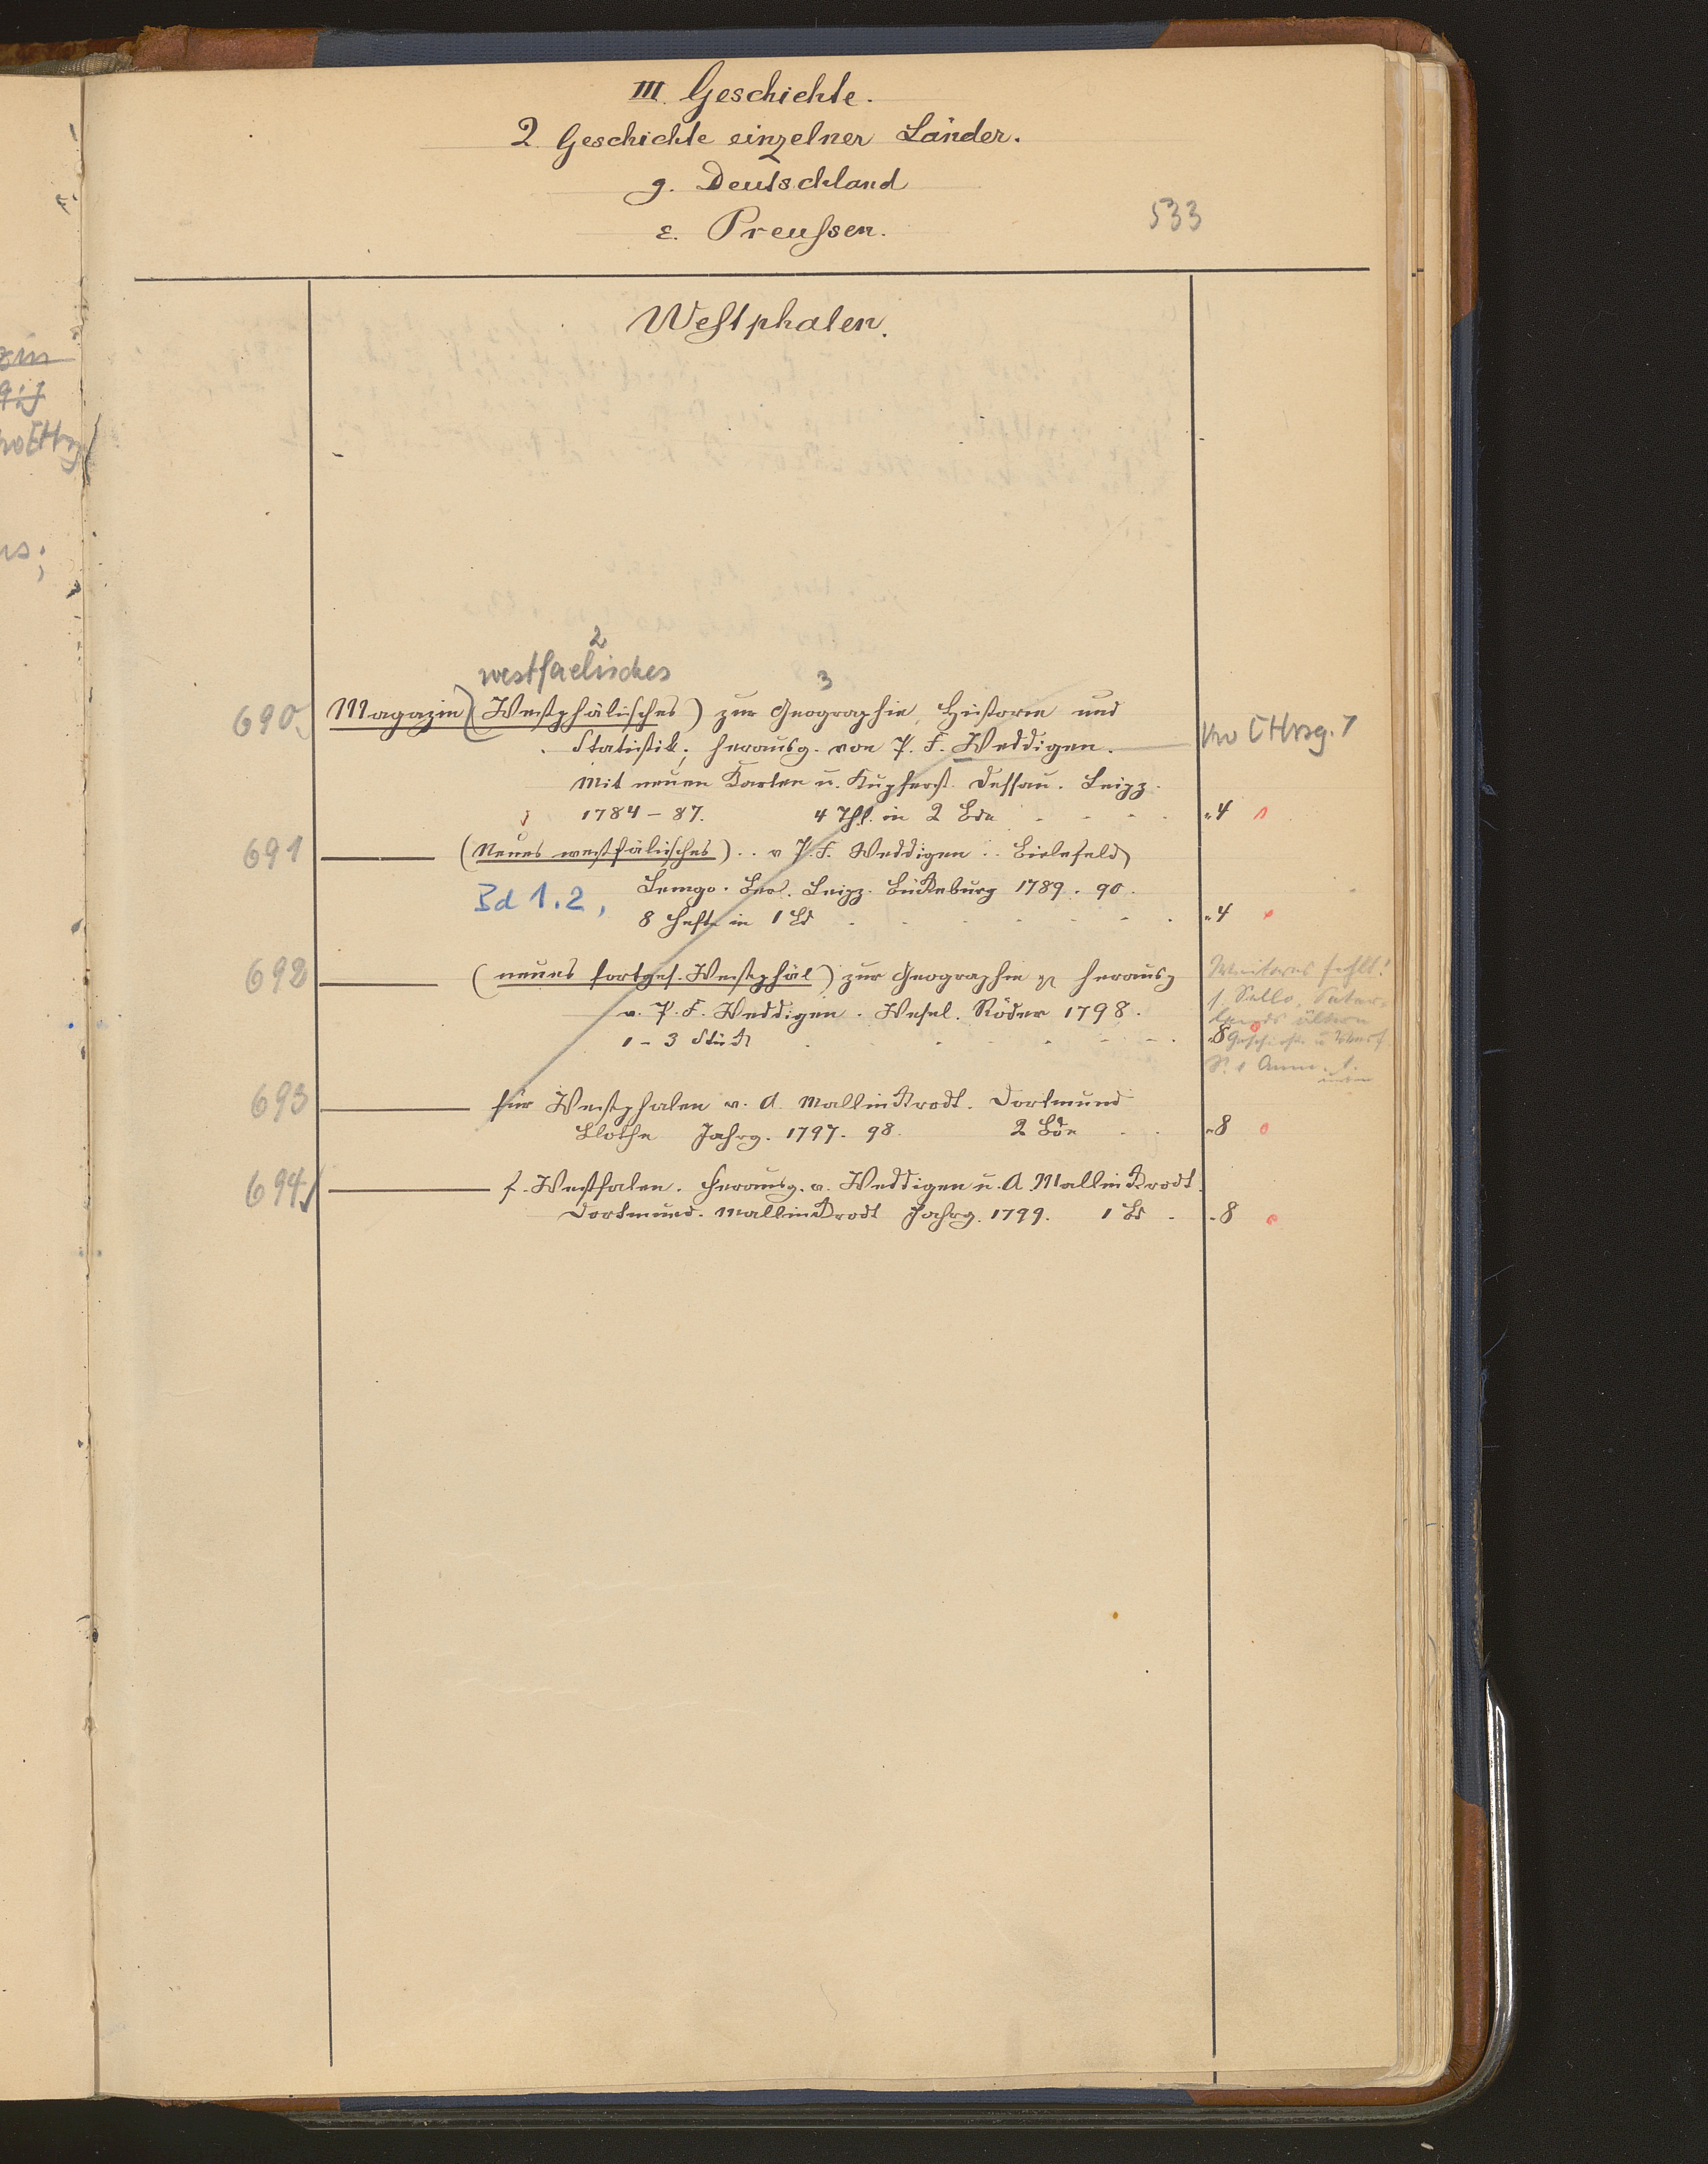 III. Geschichte.
2. Geschichte einzelner Länder.
g. Deutschland
ε. Preußen.
533
Westphalen.
2
westfaelisches
3
690. Magazin (Westphälisches) zur Geographie, Historie und
Statistik, herausg. von P. F. Weddigen.
Mit neuen Karten u. Kupferst. Dessau. Leipz.
1784 – 87. 4 Thl. in 2 Bde
Hrsg.
"4
691 ——— (Neues westfälisches) .. v P. F. Weddigen .. Bielefeld
Lemgo. Leipz. Bückeburg 1789. 90.
Bd 1.2,
8 Hefte in 1 Bd
"4
692 ——— (neues fortges. Westphäl) zur Geographie herausg
v. P. F. Weddigen. Wesel. Röder 1798.
1 – 3 Stück
"8
Weiteres fehlt!
s. Sello, Sater-
lands ältere
693 ——— für Westphalen v. A. Mallinckrodt. Dortmund
Blothe Jahrg. 1797. 98. 2 Bde
"8
694 ——— f. Westfalen. Herausg. v. Weddigen u. A. Mallinckrodt.
Dortmund. Mallinckrodt Jahrg. 1799. 1 Bd
"8